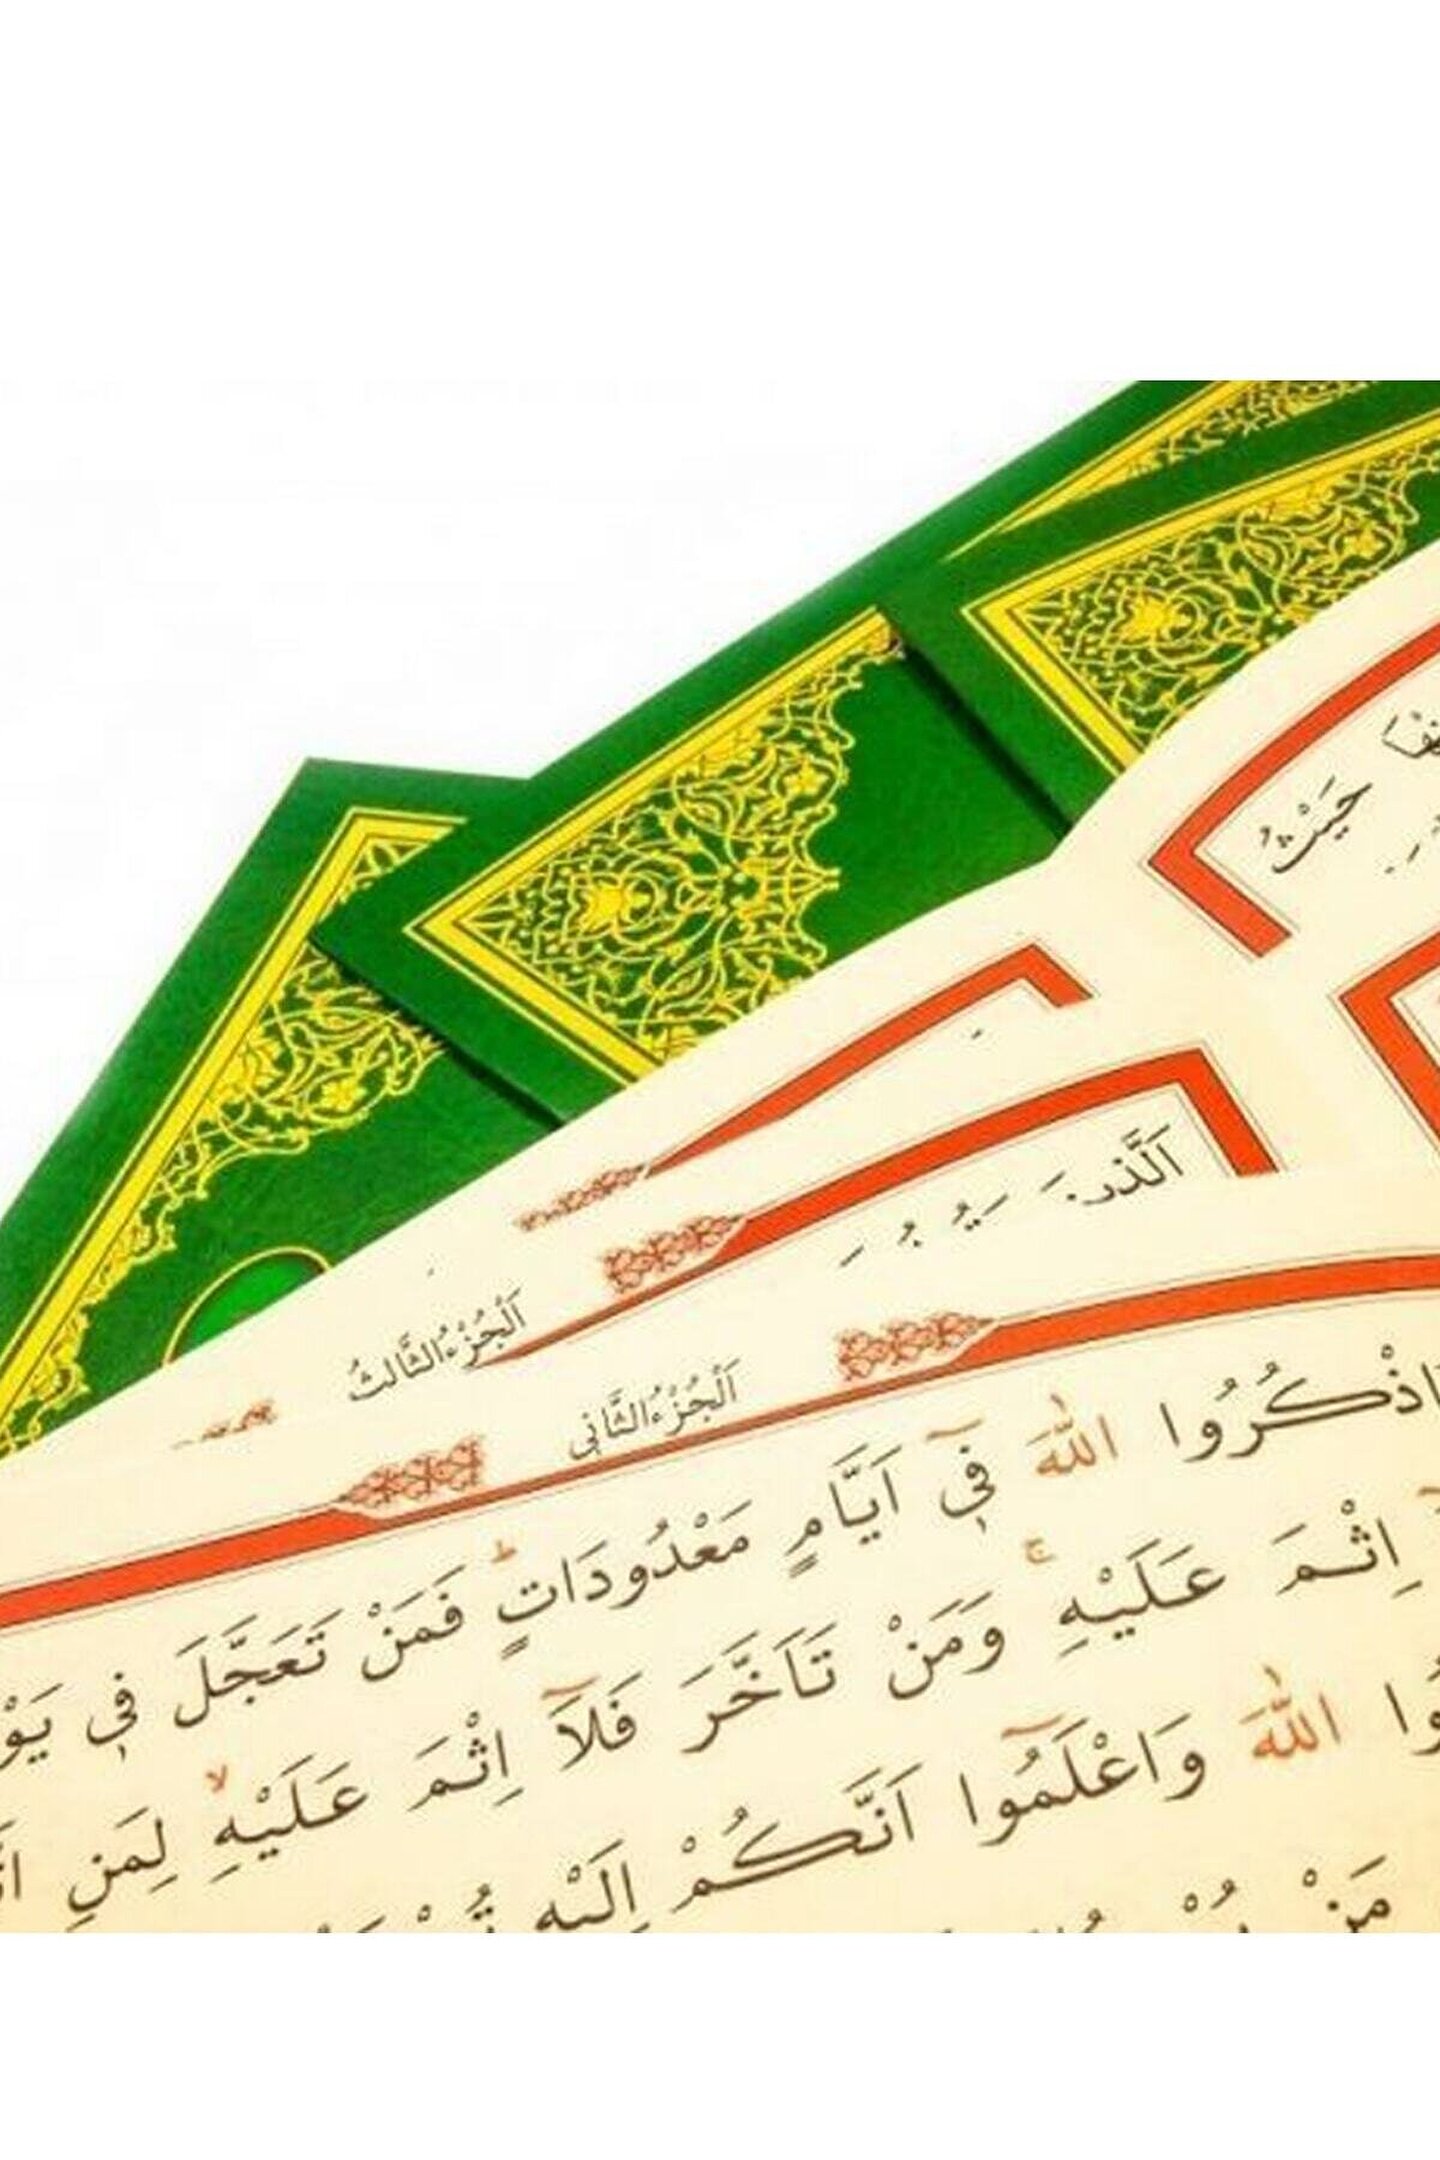 حَيْثُ
اَلَّذ۪ينَ
اَلْجُزْءُ الثَّالِثُ
اَلْجُزْءُ الثَّان۪ي
اذْكُرُوا اللّٰهَ ف۪ٓي اَيَّامٍ مَعْدُودَاتٍۜ فَمَنْ تَعَجَّلَ ف۪ي
اِثْمَ عَلَيْهِۚ وَمَنْ تَاَخَّرَ فَلَٓا اِثْمَ عَلَيْهِۙ لِمَنِ
اللّٰهَ وَاعْلَمُٓوا اَنَّكُمْ اِلَيْهِ
مَنْ